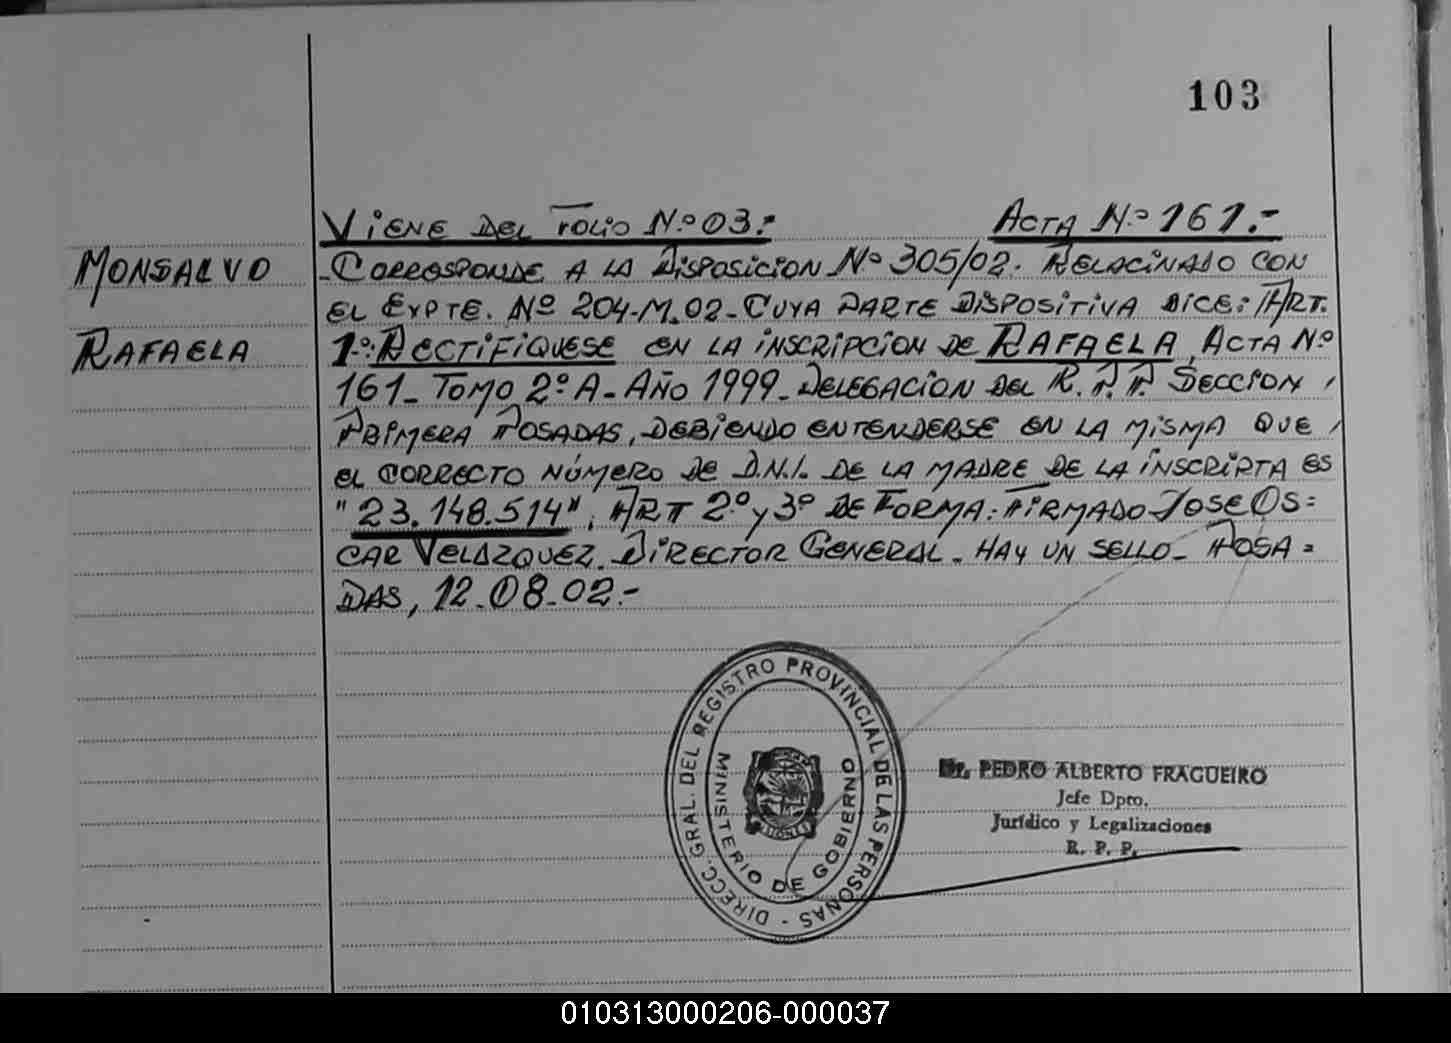 103
VIENE DEL FOLIO Nº 03:- ACTA Nº 161.-
MONSALVO
RAFAELA
-CORRESPONDE A LA DISPOSICION Nº 305/02. RELACINADO CON
EL EXPTE. Nº 204-M.02-CUYA PARTE DISPOSITIVA DICE: /ART.
1º: RECTIFIQUESE EN LA INSCRIPCION DE RAFAELA, ACTA Nº
161-TOMO 2º A-AÑO 1999-DELEGACION DEL R.P.P. SECCION /
PRIMERA POSADAS, DEBIENDO ENTENDERSE EN LA MISMA QUE /
EL CORRECTO NÚMERO DE D.N.I. DE LA MADRE DE LA INSCRIPTA ES
"23.148.514". ART 2º y 3º DE FORMA: FIRMADO JOSE OS=
CAR VELAZQUEZ. DIRECTOR GENERAL-HAY UN SELLO-POSA=
DAS, 12-08-02.-
DIRECC. GRAL. DEL REGISTRO PROVINCIAL DE LAS PERSONAS -
MINISTERIO DE GOBIERNO
Dr. PEDRO ALBERTO FRAGUEIRO
Jefe Dpto.
Jurídico y Legalizaciones
R. P. P.
010313000206-000037